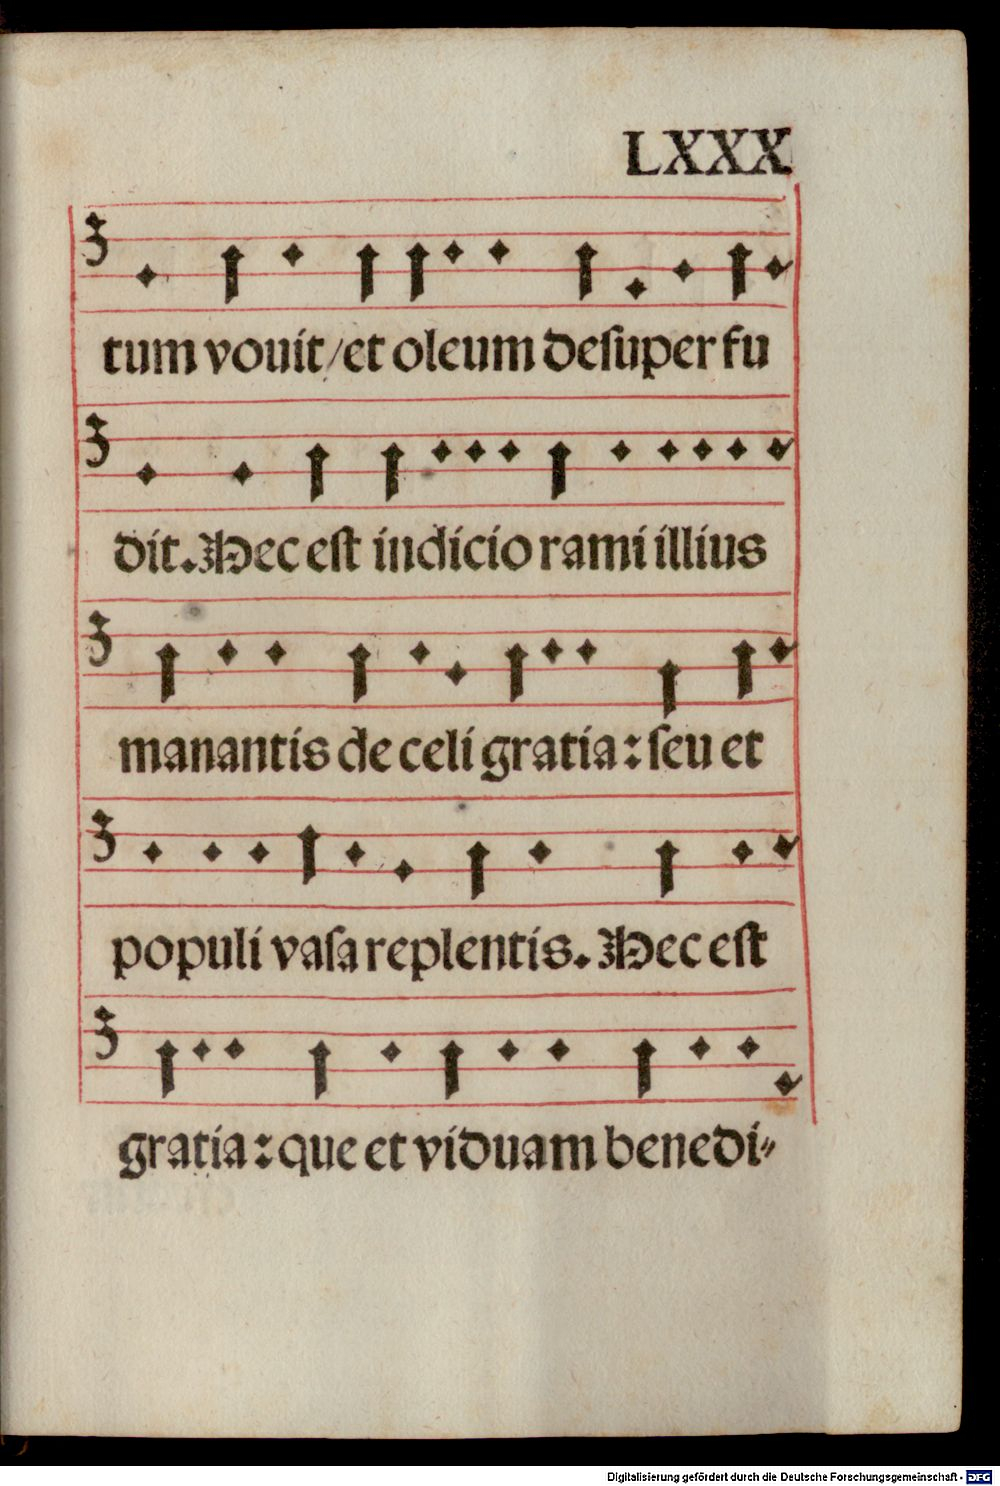 LXXX
tum vouit/et oleum deſuper fu
dit. Hec eſt indicio rami illius
manantis de celi gratia: ſeu et
populi vaſa replentis. Hec eſt
gratia: que et viduam benedi⸗
Digitalisierung gefördert durch die Deutsche Forschungsgemeinschaft - DFG